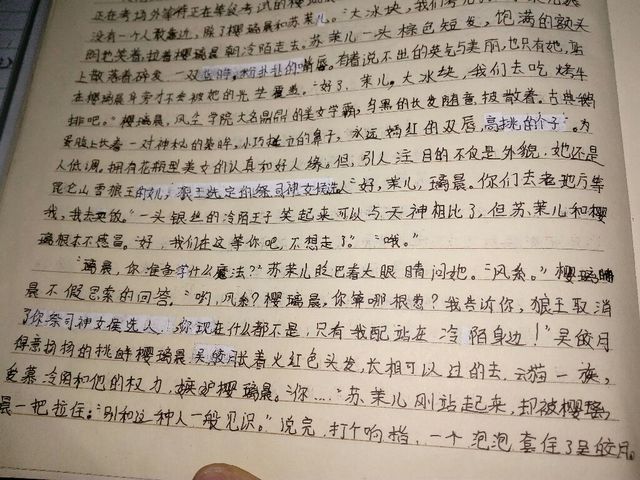 正在考场外等待正在等级考试的樱璃
没有一个人敢靠近,除了樱璃晨和苏茉儿。"大冰块,我们
阳地笑着,拉着樱璃晨朝冷陌走去。苏茉儿一头棕色短发,饱满的额头
上散落着碎发,一双 粉扑扑的嘴唇。有着说不出的英气与美丽,也只有她,
在樱璃晨身旁才不会被她的光芒覆盖。"好了,茉儿。大冰块,我们去吃烤牛
排吧。"樱璃晨,风尘学院大名鼎鼎的美女学霸,乌黑的长发随意披散着。古典鹅
蛋脸上长着一对神秘的紫眸,小巧挺立的鼻子,永远嫣红的双唇,高挑的个子。为
人低调。拥有花瓶型美女的认真和好人缘。但,引人注目的不仅是外貌,她还是
昆仑山雪狼王的女儿,狼王选定的祭司神女候选人"好,茉儿,璃晨。你们去老地方等
我,我去买饭。"一头银丝的冷陌王子笑起来可以与天神相比了,但苏茉儿和樱
璃根本不感冒。"好,我们在这等你吧,不想走了。""哦。"
"璃晨,你准备学什么魔法?"苏茉儿眨巴着大眼睛问她。"风系。"樱璃
晨不假思索的回答。"哟,风系?樱璃晨,你算哪根葱?我告诉你,狼王取消
了你祭司神女候选人,你现在什么都不是,只有我配站在冷陌身边!"吴皎月
得意扬扬的挑衅樱璃晨。吴皎月长着火红色头发,长相可以过的去,云猫一族,
爱慕冷陌和他的权力,嫉妒樱璃晨。"你...."苏茉儿刚站起来,却被樱璃
晨一把拉住:"别和这种人一般见识。"说完,打个响指,一个泡泡套住了吴皎月。